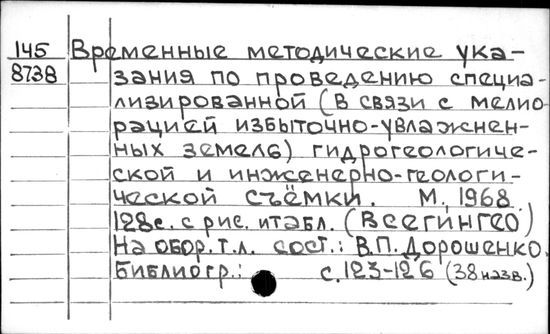 145 Временные методические ука-
8738 зания по проведению специа-
лизированной (в связи с мелио-
рацией избыточно-увлажнен-
ных земель) гидрогеологиче-
ской и инженерно-геологи-
ческой съёмки. М., 1968.
128с. с рис. и табл. (ВСЕГИНГЕО)
На обор. т.л. сост.: В.П. Дорошенко.
Библиогр.: с. 123-126 (38 назв.)